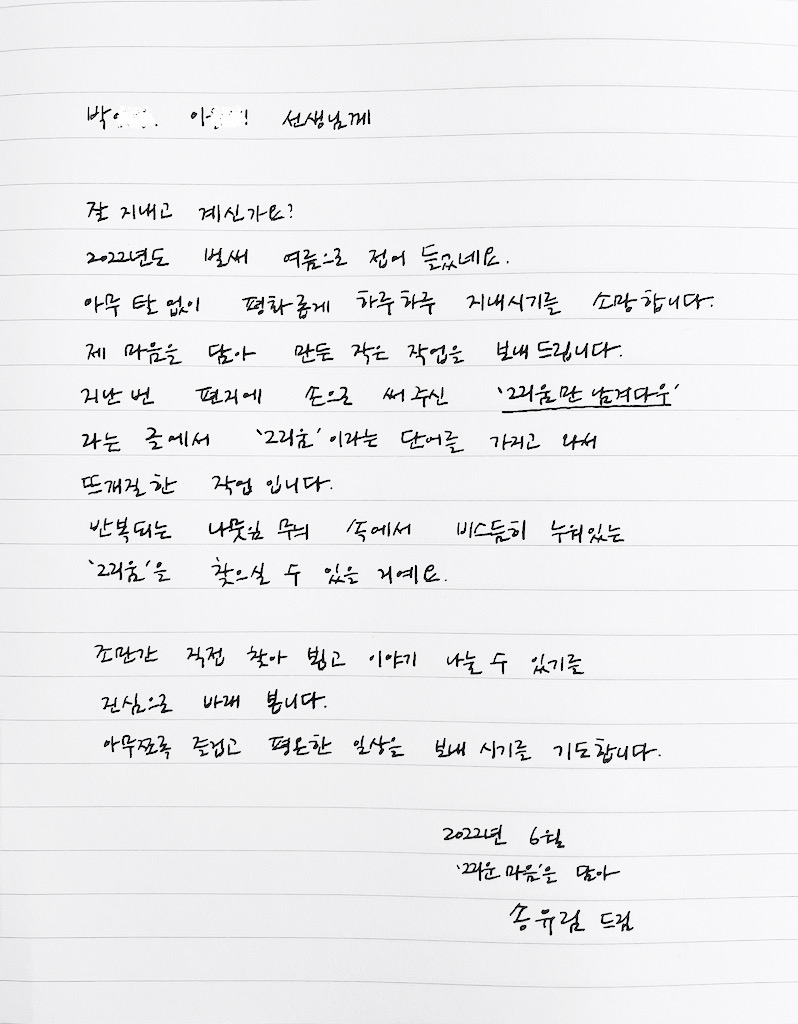 박 이 선생님께
잘 지내고 계신가요?
2022년도 벌써 여름으로 접어 들었네요.
아무 탈 없이 평화롭게 하루하루 지내시기를 소망합니다.
제 마음을 담아 만든 작은 작업을 보내드립니다.
지난 번 편지에 손으로 써 주신 '그리움만 남겨다우'
라는 글에서 '그리움'이라는 단어를 가지고 와서
뜨개질한 작업입니다.
반복되는 나뭇잎 무늬 속에서 비스듬히 누워있는
'그리움'을 찾으실 수 있을 거예요.
조만간 직접 찾아 뵙고 이야기 나눌 수 있기를
진심으로 바래 봅니다.
아무쪼록 즐겁고 평온한 일상을 보내시기를 기도합니다.
2022년 6월
'그리운 마음'을 담아
송유림 드림